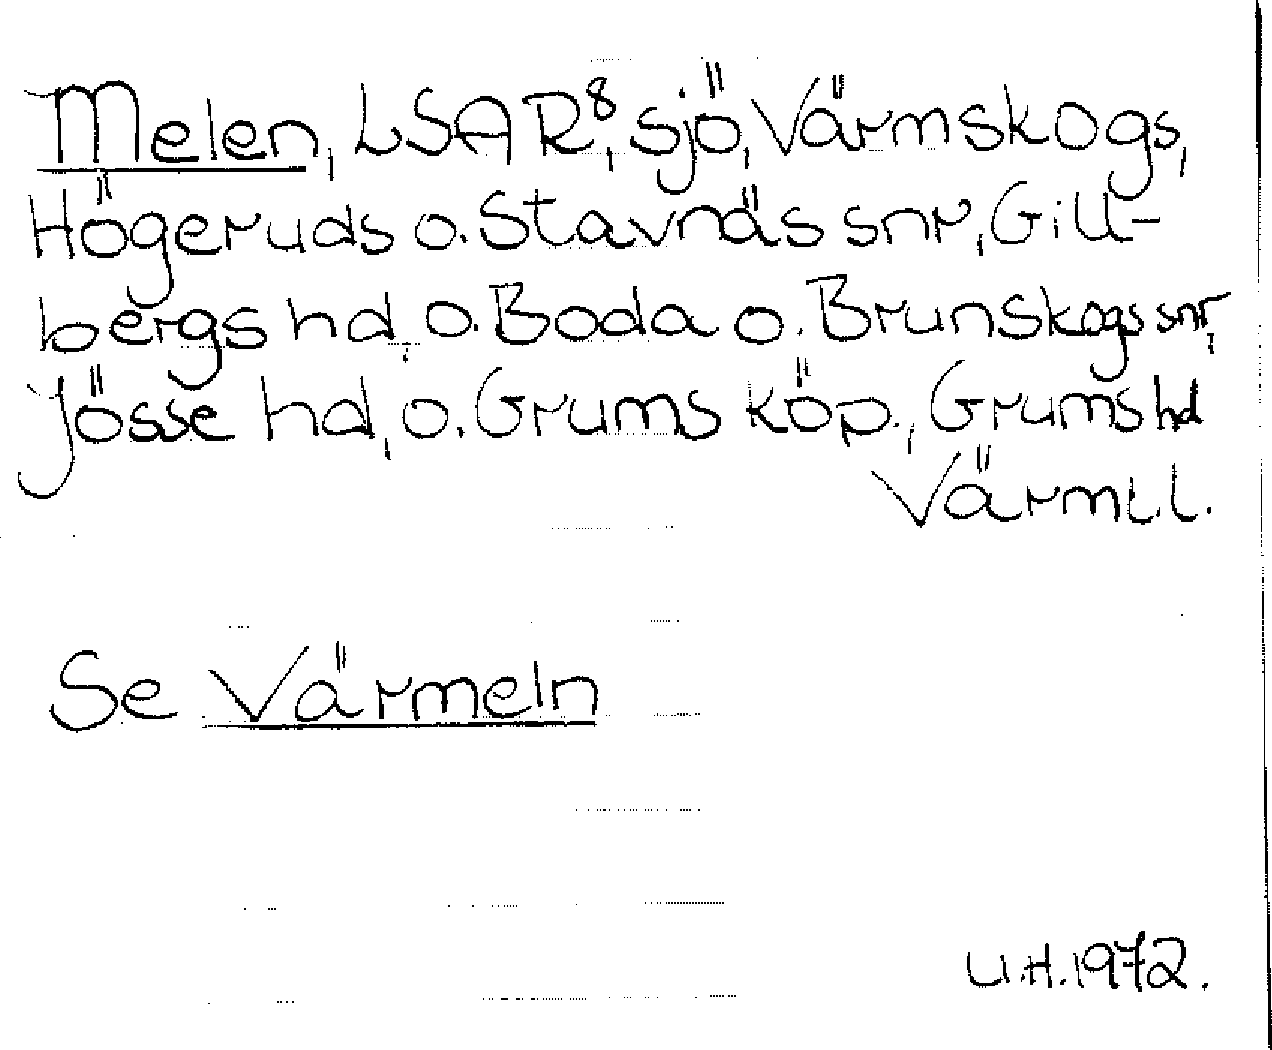 Melen, LSAR⁸, sjö, Värmskogs,
Högeruds o. Stavnäs snr, Gill-
bergs hd, o. Boda o. Brunskogs snr,
Jösse hd, o. Grums köp., Grums hd
Värml.
Se Värmeln
U.H. 1972.